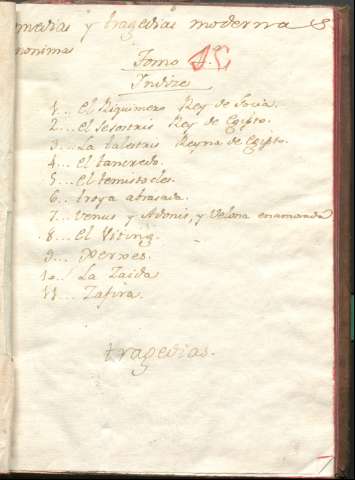 medias y tragedias modernas
nonimas
Tomo
Indize
1... El Riquimero Rey de Socia.
2... El Sesostris Rey de Egipto.
3... La talestris Reyna de Egipto.
4... El tancredo.
5... El temistocles.
6... troya abrasada.
7... Venus y Adonis, y Velona enamorada
8... El Viting.
9... Xerxes.
10... La Zaida
11... Zafira.
tragedias.